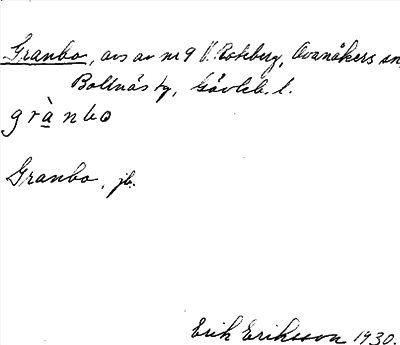 Granbo, avs av nr 9 V. Roteberg, Ovanåkers sn,
Bollnäs tg, Gävleb. l.
grànbo
Granbo, jb.
Erik Eriksson 1930.